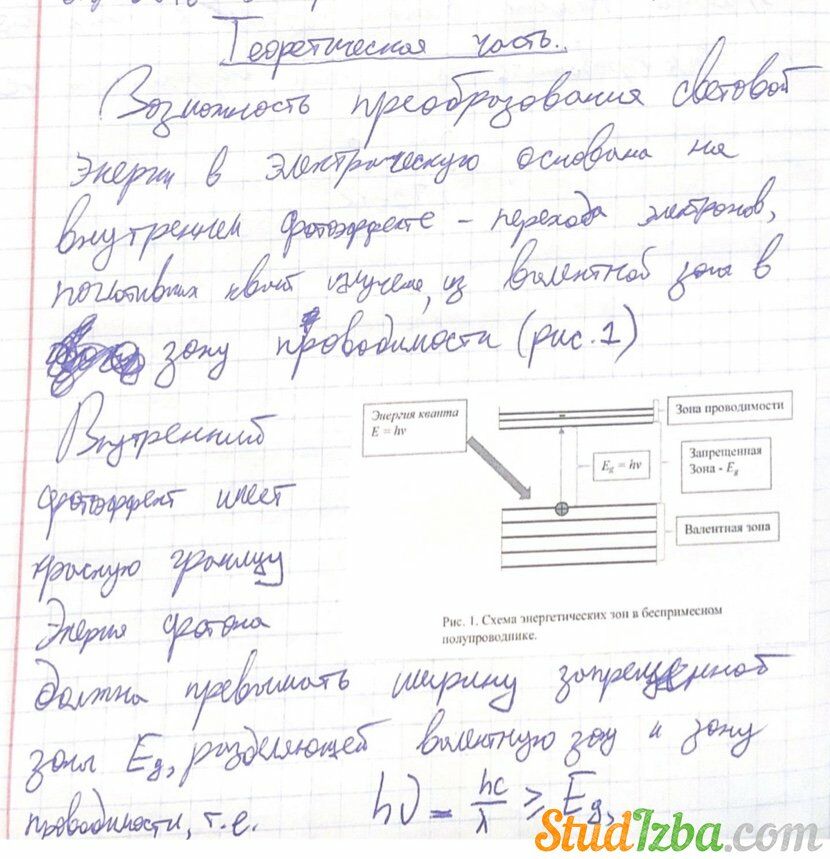 Теоретическая часть.
Возможность преобразования световой
энергии в электрическую основана на
внутреннем фотоэффекте – перехода электронов,
поглотивших квант излучения, из валентной зоны в
зону проводимости (рис. 1)
Внутренний
фотоэффект имеет
красную границу
Энергия фотона
Энергия кванта
E = hν
Зона проводимости
E_g = hν
Запрещенная
Зона - E_g
Валентная зона
Рис. 1. Схема энергетических зон в беспримесном
полупроводнике.
должна превышать ширину запрещенной
зоны Eg, разделяющей валентную зону и зону
проводимости, т.е. hν = hc/λ ≥ Eg,
StudIzba.com